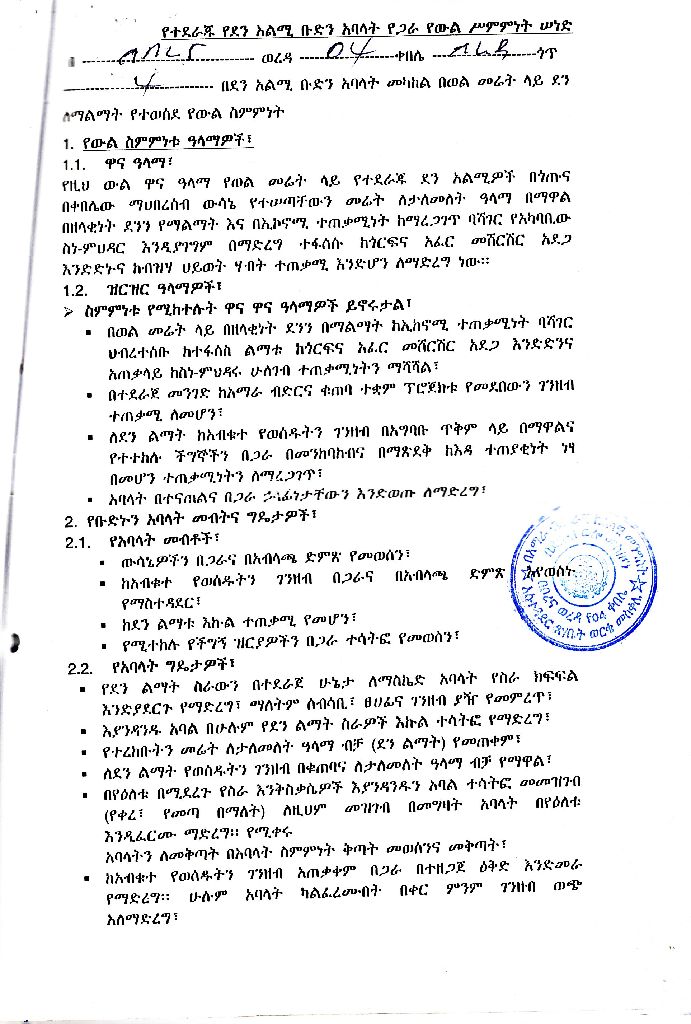 የተደራጁ የደን አልሚ ቡድን አባላት የጋራ የውል ሥምምነት ሠነድ
ወረዳ 04 ቀበሌ ጎጥ
4 በደን አልሚ ቡድን አባላት መካከል በወል መሬት ላይ ደን
ለማልማት የተወሰደ የውል ስምምነት
1. የውል ስምምነቱ ዓላማዎች፣
1.1. ዋና ዓላማ፣
የዚህ ውል ዋና ዓላማ የወል መሬት ላይ የተደራጁ ደን አልሚዎች በጎጡና
በቀበሌው ማህበረሰብ ውሳኔ የተሠጣቸውን መሬት ለታለመለት ዓላማ በማዋል
በዘላቂነት ደንን የማልማት እና በኢኮኖሚ ተጠቃሚነት ከማረጋገጥ ባሻገር የአካባቢው
ስነ-ምህዳር እንዲያገግም በማድረግ ተፋሰሱ ከጎርፍና አፈር መሸርሸር አደጋ
እንድድኑና ከብዝሃ ሀይወት ሃብት ተጠቃሚ እንድሆን ለማድረግ ነው።
1.2. ዝርዝር ዓላማዎች፣
➢ ስምምነቱ የሚከተሉት ዋና ዋና ዓላማዎች ይኖሩታል፣
▪ በወል መሬት ላይ በዘላቂነት ደንን በማልማት ከኢክኖሚ ተጠቃሚነት ባሻገር
ህብረተሰቡ ከተፋሰስ ልማቱ ከጎርፍና አፈር መሸርሸር አደጋ እንድድንና
አጠቃላይ ከስነ-ምህዳሩ ሁለገብ ተጠቃሚነትን ማሻሻል፣
▪ በተደራጀ መንገድ ከአማራ ብድርና ቁጠባ ተቋም ፕሮጀክቱ የመደበውን ገንዘብ
ተጠቃሚ ለመሆን፣
▪ ለደን ልማት ከአብቁተ የወሰዱትን ገንዘብ በአግባቡ ጥቅም ላይ በማዋልና
የተተከሉ ችግኞችን በጋራ በመንከባከብና በማጽደቅ ከእዳ ተጠያቂነት ነፃ
በመሆን ተጠቃሚነትን ለማረጋገጥ፣
▪ አባላት በተናጠልና በጋራ ኃፊነታቸውን እንድወጡ ለማድረግ፣
2. የቡድኑን አባላት መብትና ግዴታዎች፣
2.1. የአባላት መብቶች፣
▪ ውሳኔዎችን በጋራና በአብላጫ ድምጽ የመወሰን፣
▪ ከአብቁተ የወሰዱትን ገንዘብ በጋራና በአብላጫ ድምጽ እየወሰኑ
የማስተዳደር፣
▪ ከደን ልማቱ እኩል ተጠቃሚ የመሆን፣
▪ የሚተከሉ የችግኝ ዝርያዎችን በጋራ ተሳትፎ የመወሰን፣
2.2. የአባላት ግዴታዎች፣
▪ የደን ልማት ስራውን በተደራጀ ሁኔታ ለማስኬድ አባላት የስራ ክፍፍል
እንድያደርጉ የማድረግ፣ ማለትም ሰብሳቢ፣ ፀሀፊና ገንዘብ ያዥ የመምረጥ፣
▪ እያንዳንዱ አባል በሁሉም የደን ልማት ስራዎች እኩል ተሳትፎ የማድረግ፣
▪ የተረከቡትን መሬት ለታለመለት ዓላማ ብቻ (ደን ልማት) የመጠቀም፣
▪ ለደን ልማት የወሰዱትን ገንዘብ በቁጠባና ለታለመለት ዓላማ ብቻ የማዋል፣
▪ በየዕለቱ በሚደረጉ የስራ እንቅስቃሴዎች እያንዳንዱን አባል ተሳትፎ መመዝገብ
(የቀረ፣ የመጣ በማለት) ለዚህም መዝገብ በመግዛት አባላት በየዕለቱ
እንዲፈርሙ ማድረግ። የሚቀሩ
አባላትን ለመቅጣት በአባላት ስምምነት ቅጣት መወሰንና መቅጣት፣
▪ ከአብቁተ የወሰዱትን ገንዘብ አጠቃቀም በጋራ በተዘጋጀ ዕቅድ እንድመራ
የማድረግ። ሁሉም አባላት ካልፈረሙበት በቀር ምንም ገንዘብ ወጭ
አለማድረግ፣